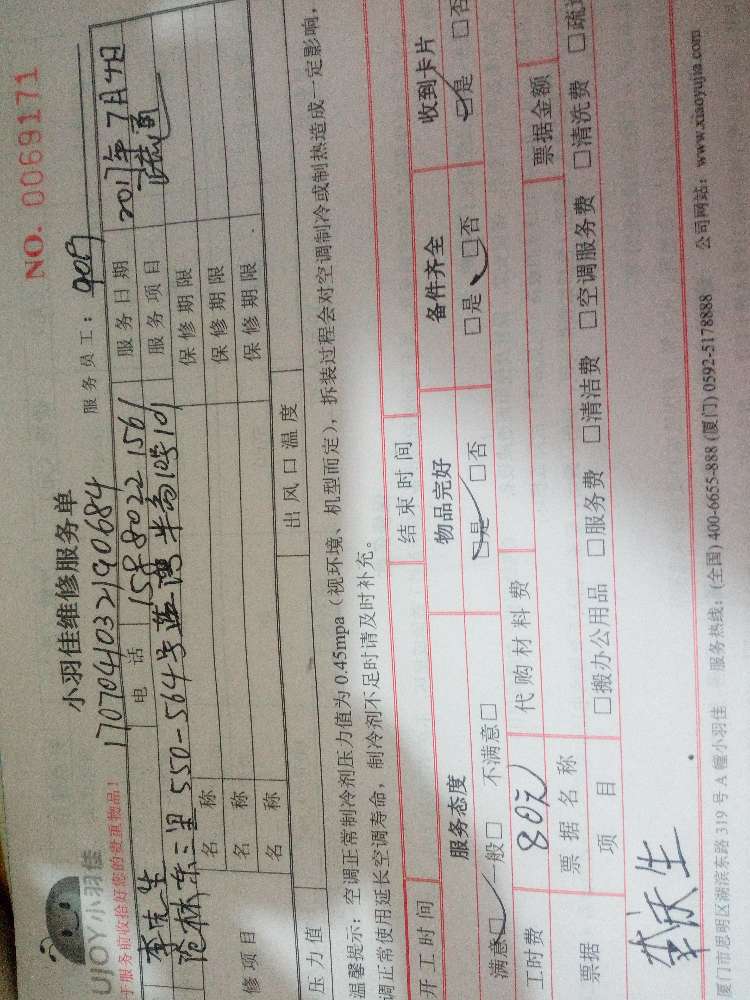 NO. 0069171
UJOY小羽佳
小羽佳维修服务单
于服务前收拾好您的贵重物品!
170704103219068​4
服务员工: 9019
李先生 电话 15880221561 服务日期 2017年7月4日
范林东三里550-564号蓝湾半岛10号101 服务项目
修项目 名称 保修期限
名称 保修期限
名称 保修期限
压力值 出风口温度
温馨提示: 空调正常制冷剂压力值为0.45mpa(视环境、机型而定), 拆装过程会对空调制冷或制热造成一定影响,
调正常使用延长空调寿命, 制冷剂不足时请及时补充。
开工时间 结束时间
服务态度 物品完好 备件齐全 收到卡片
满意□ 一般□ 不满意□ □是 □否 □是 □否 □是 □否
工时费 80元 代购材料费
票据 票据名称 票据金额
项目 □搬办公用品 □服务费 □清洁费 □空调服务费 □清洗费 □疏
李庆生
厦门市思明区湖滨东路319号A幢小羽佳 服务热线: (全国) 400-6655-888 (厦门) 0592-5178888 公司网站: www.xiaoyujia.com